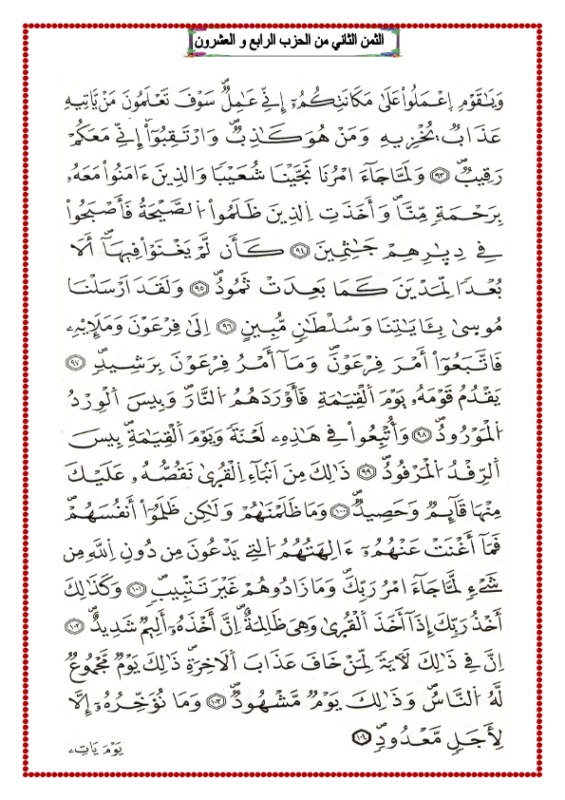 الثمن الثاني من الحزب الرابع و العشرون
وَيَٰقَوْمِ اِ۪عْمَلُواْ عَلَىٰ مَكَانَتِكُمُۥٓ إِنِّے عَٰمِلٞۖ سَوْفَ تَعْلَمُونَ مَنْ يَّاتِيهِ
عَذَابٞ يُخْزِيهِ وَمَنْ هُوَ كَٰذِبٞۖ وَارْتَقِبُوٓاْ إِنِّے مَعَكُمْ
رَقِيبٞۖ ٩٣ وَلَمَّا جَآءَ امْرُنَا نَجَّيْنَا شُعَيْباٗ وَالذِينَ ءَامَنُواْ مَعَهُۥ
بِرَحْمَةٖ مِّنَّاۖ وَأَخَذَتِ اِ۬لذِينَ ظَلَمُواْ اُ۬لصَّيْحَةُ فَأَصْبَحُواْ
فِے دِيٰ۪رِهِمْ جَٰثِمِينَ ٩٤ كَأَن لَّمْ يَغْنَوْاْ فِيهَآۖ أَلَا
بُعْداٗ لِّمَدْيَنَ كَمَا بَعِدَتْ ثَمُودُۖ ٩٥ وَلَقَدَ اَرْسَلْنَا
مُوسَىٰ بِـَٔايَٰتِنَا وَسُلْطَٰنٖ مُّبِينٍ ٩٦ اِلَىٰ فِرْعَوْنَ وَمَلَإِيْهِۦ
فَاتَّبَعُوٓاْ أَمْرَ فِرْعَوْنَۖ وَمَآ أَمْرُ فِرْعَوْنَ بِرَشِيدٖۖ ٩٧
يَقْدُمُ قَوْمَهُۥ يَوْمَ اَ۬لْقِيَٰمَةِ فَأَوْرَدَهُمُ اُ۬لنَّارَۖ وَبِيسَ اَ۬لْوِرْدُ
اُ۬لْمَوْرُودُۖ ٩٨ وَأُتْبِعُواْ فِے هَٰذِهِۦ لَعْنَةٗ وَيَوْمَ اَ۬لْقِيَٰمَةِۖ بِيسَ
اَ۬لرِّفْدُ اُ۬لْمَرْفُودُۖ ٩٩ ذَٰلِكَ مِنَ اَنۢبَآءِ اِ۬لْقُرَىٰ نَقُصُّهُۥ عَلَيْكَ
مِنْهَا قَآئِمٞ وَحَصِيدٞۖ ١٠٠ وَمَا ظَلَمْنَٰهُمْ وَلَٰكِن ظَلَمُوٓاْ أَنفُسَهُمْۖ
فَمَآ أَغْنَتْ عَنْهُمُۥٓ ءَالِهَتُهُمُ اُ۬لتِے يَدْعُونَ مِن دُونِ اِ۬للَّهِ مِن
شَےْءٖ لَّمَّا جَآءَ امْرُ رَبِّكَۖ وَمَا زَادُوهُمْ غَيْرَ تَتْبِيبٖۖ ١٠١ وَكَذَٰلِكَ
أَخْذُ رَبِّكَ إِذَآ أَخَذَ اَ۬لْقُرَىٰ وَهِيَ ظَٰلِمَةٌۖ اِنَّ أَخْذَهُۥٓ أَلِيمٞ شَدِيدٌۖ ١٠٢
اِنَّ فِے ذَٰلِكَ لَأٓيَةٗ لِّمَنْ خَافَ عَذَابَ اَ۬لَاخِرَةِۖ ذَٰلِكَ يَوْمٞ مَّجْمُوعٞ
لَّهُ اُ۬لنَّاسُۖ وَذَٰلِكَ يَوْمٞ مَّشْهُودٞۖ ١٠٣ وَمَا نُؤَخِّرُهُۥٓ إِلَّا
لِأَجَلٖ مَّعْدُودٖۖ ١٠٤
يَوْمَ يَاتِۦ